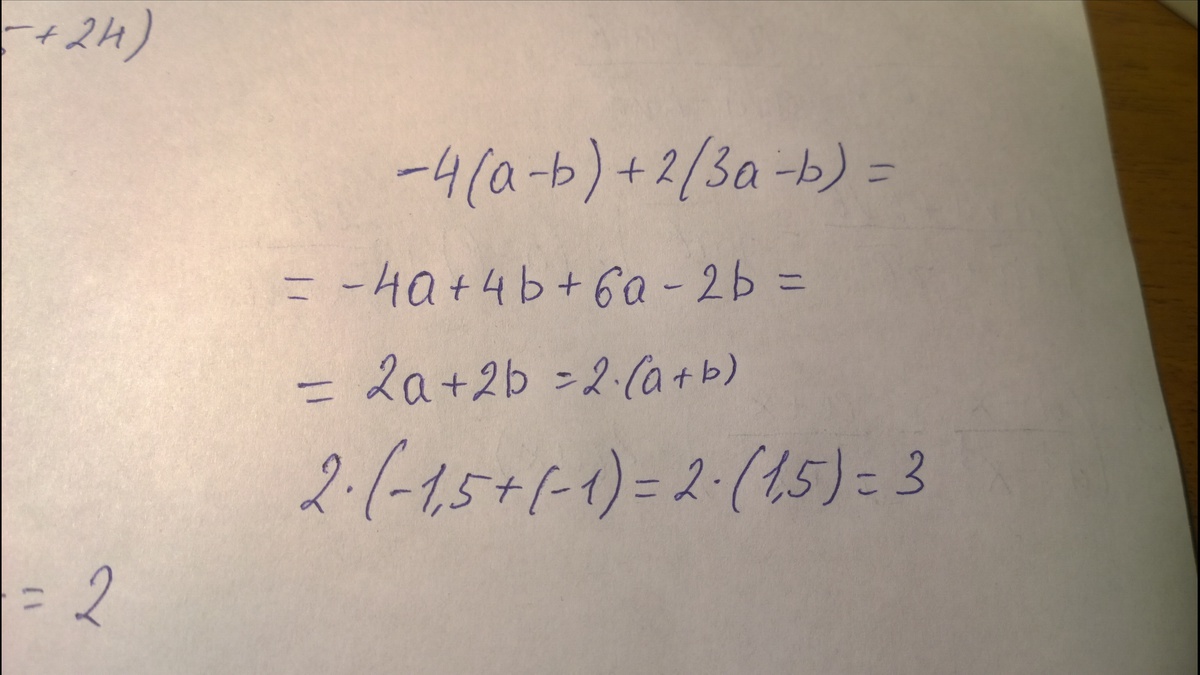 + 2н)
-4(a-b)+2(3a-b)=
= -4a+4b+6a-2b=
= 2a+2b =2·(a+b)
2·(-1,5+(-1)=2·(1,5)=3
= 2